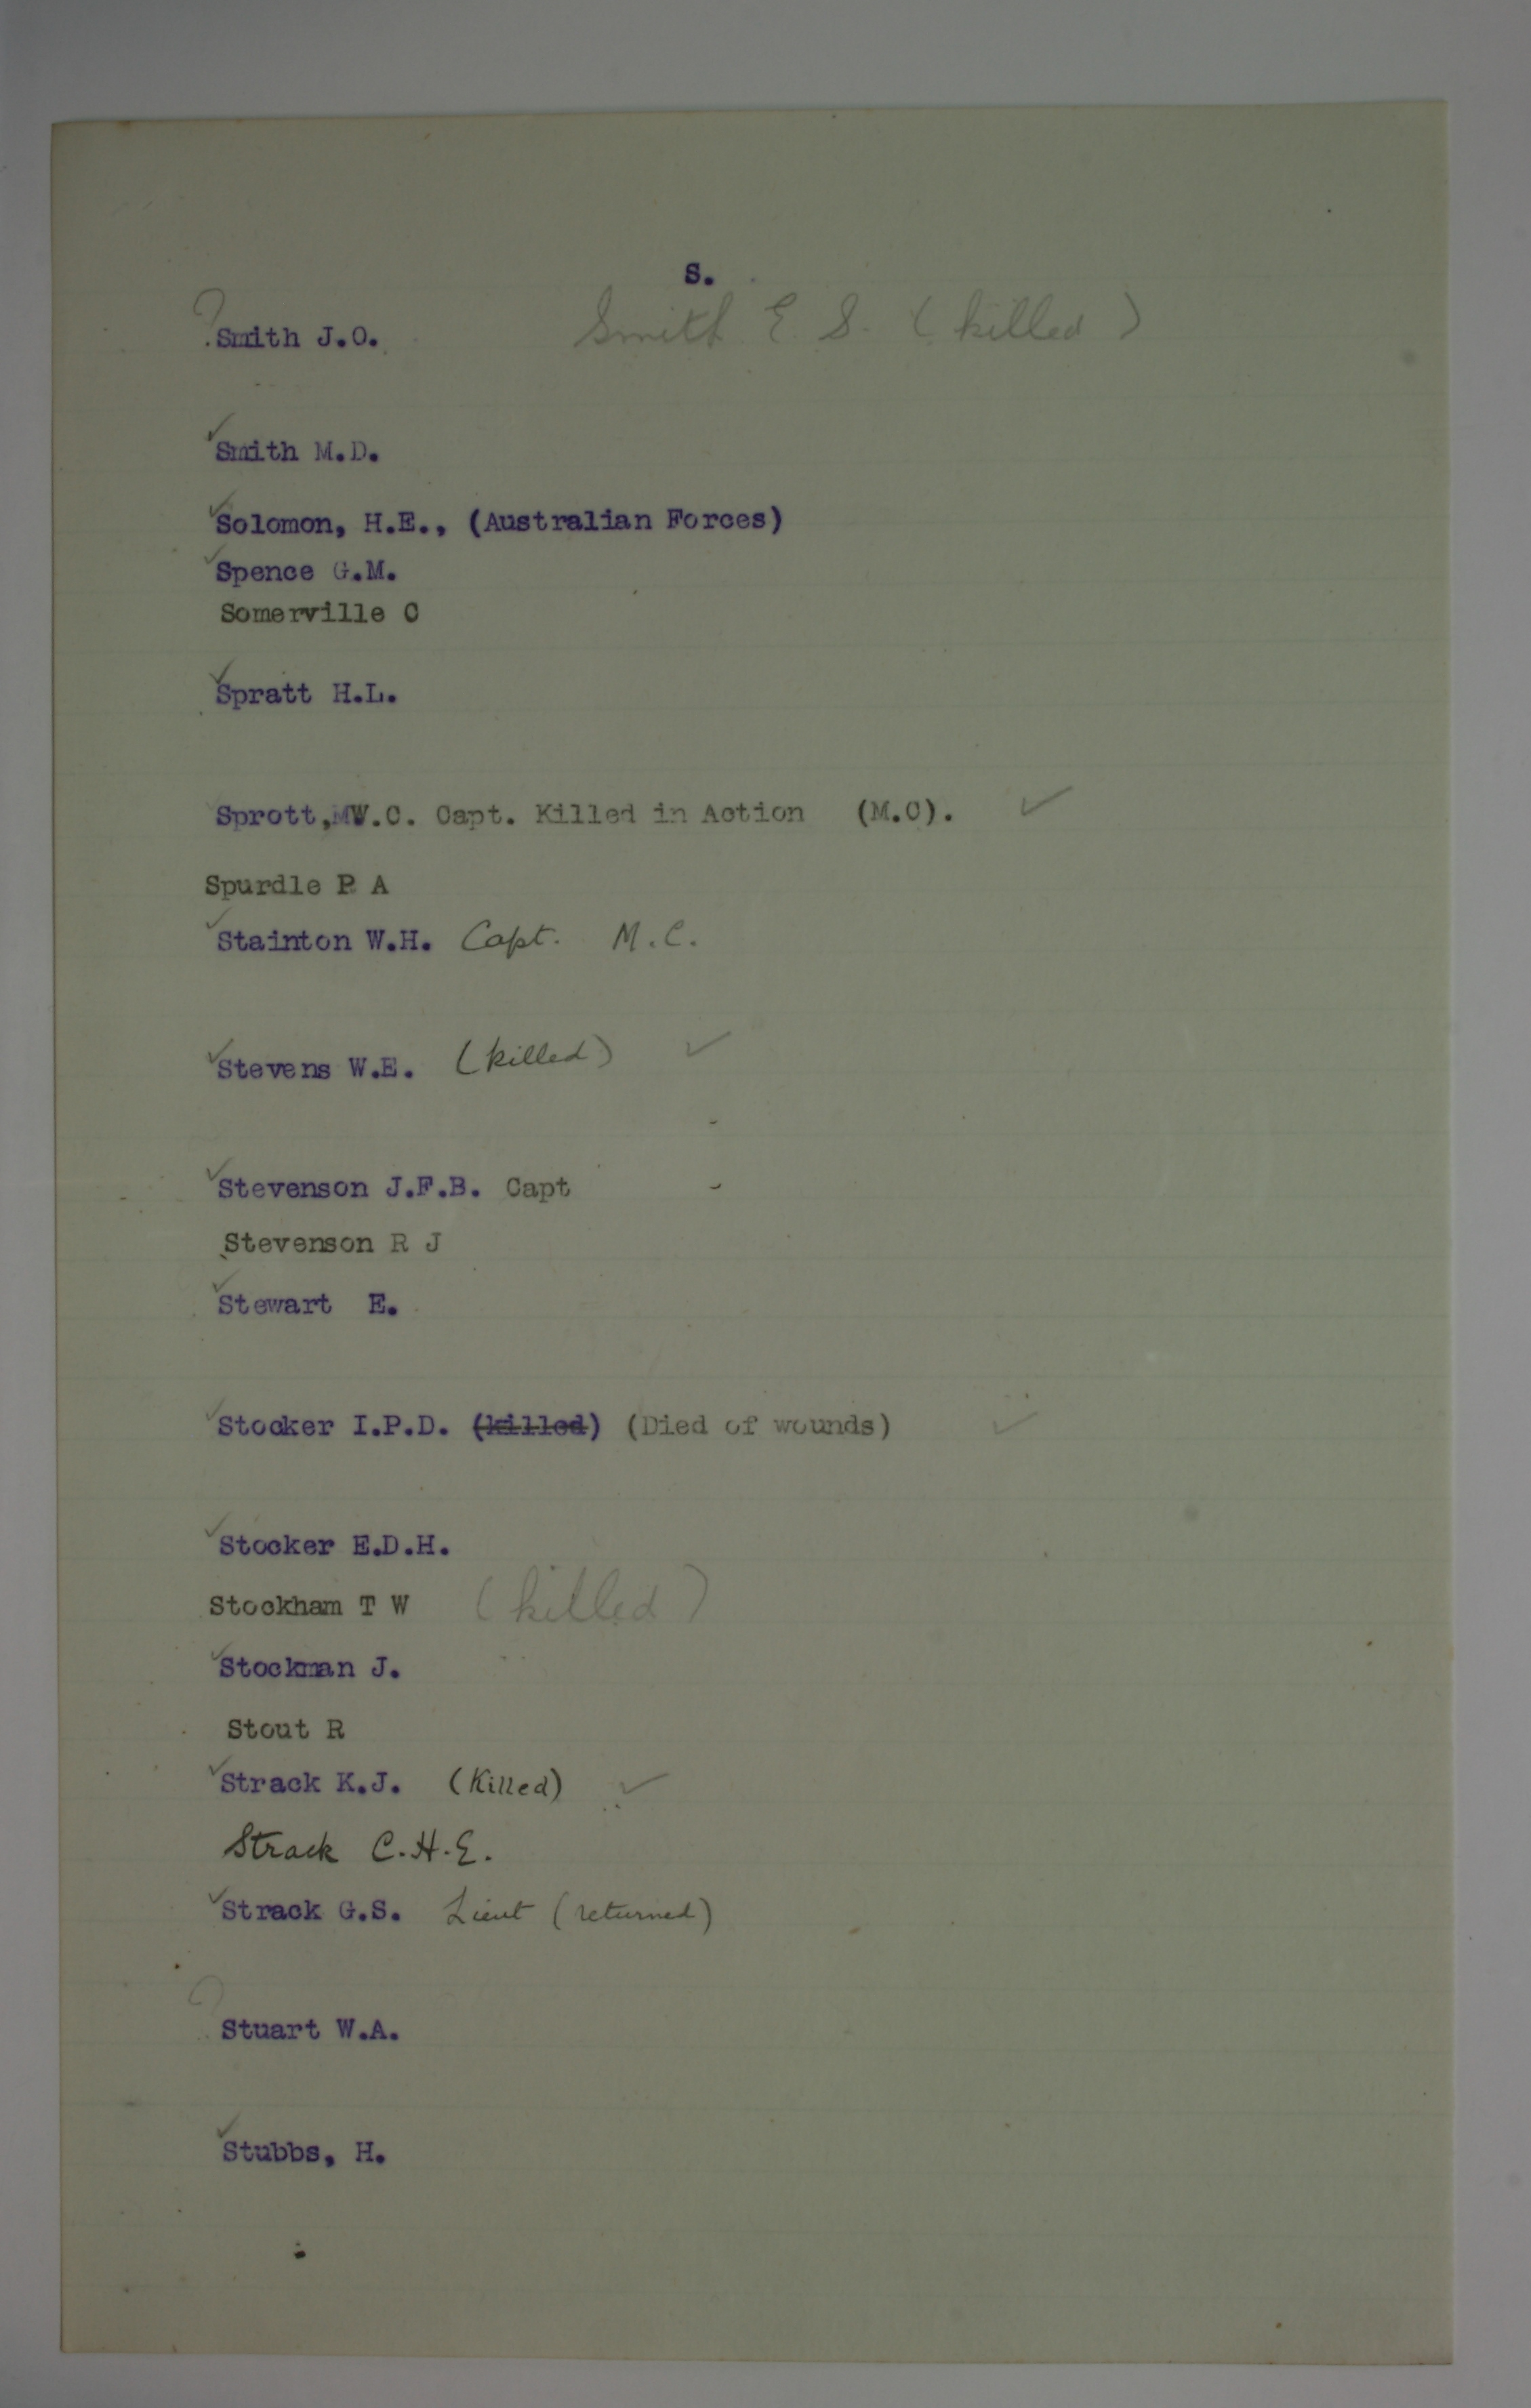 S.
? Smith J.O. Smith E S. (killed)
✓ Smith M.D.
✓ Solomon, H.E., (Australian Forces)
✓ Spence G.M.
Somerville C
✓ Spratt H.L.
Sprott, MW.C. Capt. Killed in Action (M.C). ✓
Spurdle P A
✓ Stainton W.H. Capt. M.C.
✓ Stevens W.E. (killed) ✓
✓ Stevenson J.F.B. Capt
Stevenson R J
✓ Stewart E.
✓ Stocker I.P.D. (killed) (Died of wounds) ✓
✓ Stocker E.D.H.
Stockham T W (killed)
✓ Stockman J.
Stout R
✓ Strack K.J. (Killed) ✓
Strack C.H.E.
✓ Strack G.S. Lieut (returned)
? Stuart W.A.
✓ Stubbs, H.